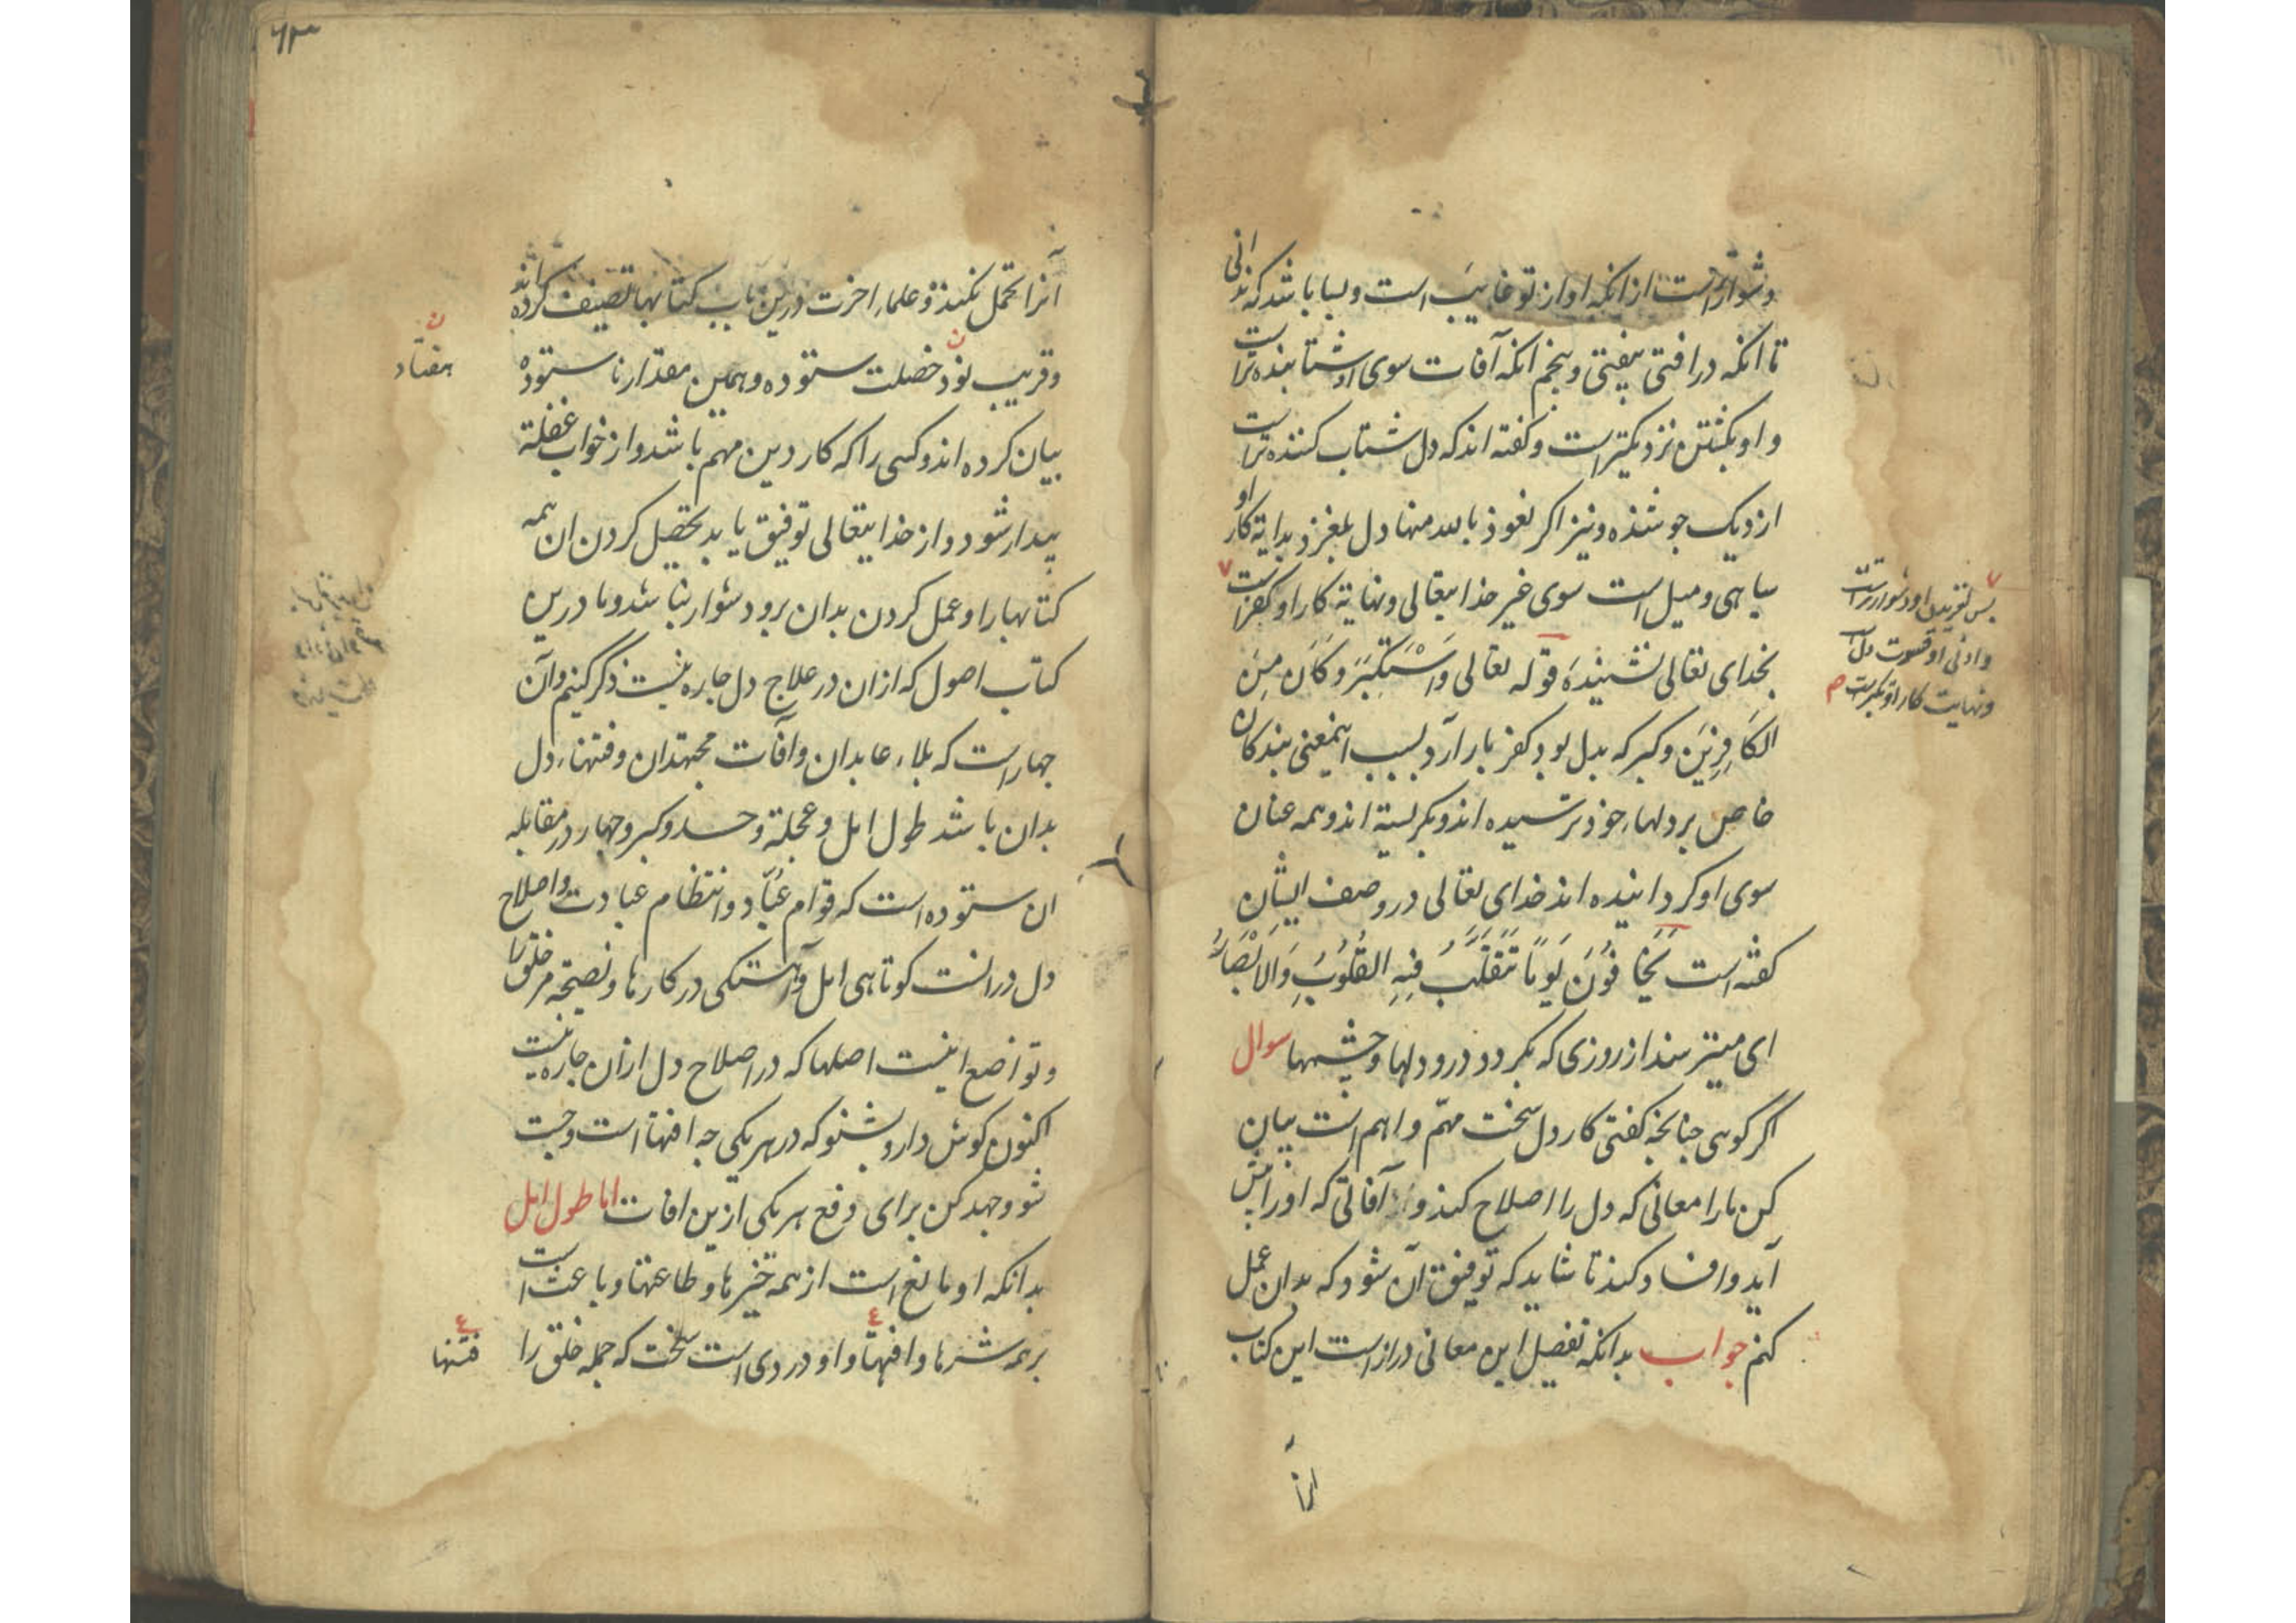 دشوارتر است از انکه او از تو غایب است و بسا باشد که ندانی
تا انکه در افتی بیفتی و پنجم انکه آفات سوی او شتابنده تر است
و او بکشتن نزدیکتر است و گفته اند که دل شتاب کننده تر است
از دیک جوشنده و نیز اگر نعوذ بالله منها دل بلغزد بدایة کار او
سیاهی و میل است سوی غیر خدایتعالی و نهایة کار او کفر است
بخدای تعالی نشنیدۀ قوله تعالی وَاسْتَكْبَرَ وَكَانَ مِنَ
الكَافِرِينَ و کبر که بدل بود کفر بار آرد بسبب اینمعنی بندکان
خاص بر دلهاء خود ترسیده اند و بکریسته اند و همه عنان
سوی او کردانیده اند خدای تعالی در وصف ایشان
کفته است يَخَافُونَ يَوْمًا تَتَقَلَّبُ فِيهِ القُلُوبُ وَالاَبْصَارُ
ای میترسند از روزی که بکردد درو دلها و چشمها سوال
اکر کوهی جنانجه کفتی کار دل سخت مهمّ و اهم است بیان
کن مارا معانی که دل را اصلاح کند و آفاتی که اورا پیش
آید و افساد کند تا شاید که توفیق آن شود که بدان عمل
کنم جواب بدانکه تفصیل این معانی دراز است این کتاب
پس تغریبل او دشوارتر است
و ادنی او قسوت دل است
و نهایت کار او بکبر است م
انرا
۶۳
آنرا تحمل نکند و علماء اخرت درین باب کتابها تصنیف کرده اند
و قریب نود خصلت ستوده و همین مقدار نا ستوده
هفتاد
بیان کرده اند و کسی را که کار دین مهم باشد و از خواب غفلة
بیدار شود و از خدایتعالی توفیق یابد بحصل کردن ان همه
کتابها را و عمل کردن بدان برو دشوار نباشد و ما درین
کتاب اصول که ازان در علاج دل جاره نیست ذکر کنیم و آن
جهار است که بلاء عابدان و آفات مجتهدان و فتنهاء دل
بدان باشد طول امل و عجلة و حسد و کبر و جهار در مقابله
ان ستوده است که قوام عبّاد و انتظام عبادت و اصلاح
دل درانست کوتاهی امل و آهستکی در کارها و نصیحة مر خلق را
و تواضع اینست اصلها که در اصلاح دل ازان جاره نیست
اکنون کوش دار و بشنو که در هر یکی جه افتها است و جست
شو و جهد کن برای دفع هر یکی ازین افات اما طول امل
بدانکه او مانع است از همه خیرها و طاعتها و باعث است
بر همه شرها و افتها و او دردی است سخت که جمله خلق را
فتنها